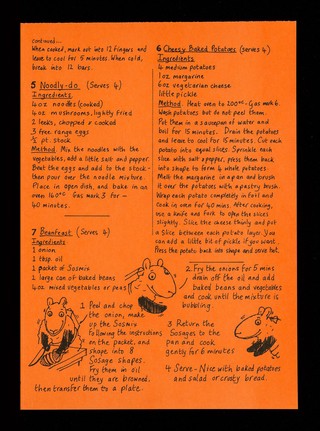 continued....
When cooked, mark out into 12 fingers and
leave to cool for 5 minutes. When cold,
break into 12 bars.
5 Noodly-do (Serves 4)
Ingredients
4oz noodles (cooked)
4oz mushrooms, lightly fried
2 leeks, chopped & cooked
3 free range eggs
½ pt. stock
Method Mix the noodles with the
vegetables, add a little salt and pepper.
Beat the eggs and add to the stock -
then pour over the noodle mixture.
Place in open dish, and bake in an
oven 160°C Gas mark 3 for -
40 minutes.
7 Beanfeast (Serves 4)
Ingredients
1 onion
1 tbsp. oil
1 packet of Sosmix
1 large can of baked beans
4oz mixed vegetables or peas
1 Peel and chop
the onion, make
up the Sosmix
following the instructions
on the packet, and
shape into 8
Sosage shapes.
Fry them in oil
until they are browned,
then transfer them to a plate.
6 Cheesy Baked Potatoes (serves 4)
Ingredients
4 medium potatoes
1oz. margarine
6oz vegetarian cheese
little pickle
Method Heat oven to 200°C - Gas mark 6.
Wash potatoes but do not peel them.
Put them in a saucepan of water and
boil for 15 minutes. Drain the potatoes
and leave to cool for 15 minutes. Cut each
potato into equal slices. Sprinkle each
slice with salt & pepper, press them back
into shape to form 4 whole potatoes.
Melt the margarine in a pan and brush
it over the potatoes with a pastry brush.
Wrap each potato completely in foil and
cook in oven for 40 mins. After cooking,
use a knife and fork to open the slices
slightly. Slice the cheese thinly and put
a slice between each potato layer. You
can add a little bit of pickle if you want.
Press the potato back into shape and serve hot.
2. Fry the onions for 5 mins
drain off the oil and add
baked beans and vegetables
and cook until the mixture is
bubbling.
3 Return the
Sosages to the
pan and cook
gently for 6 minutes
4 Serve - Nice with baked potatoes
and salad or crusty bread.